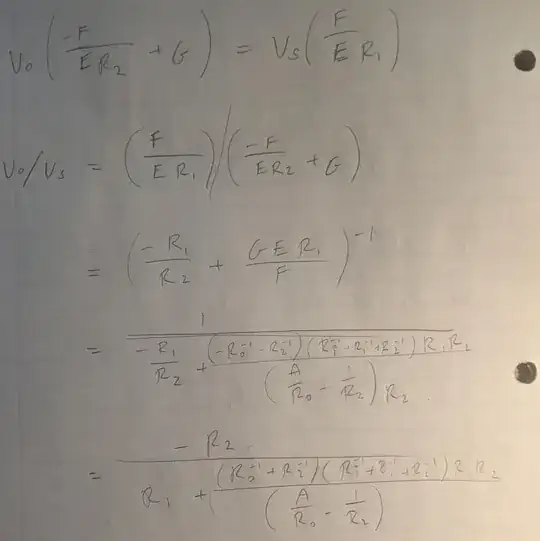 Vo ( -F / E R2 + G ) = Vs ( F / E R1 )
Vo/Vs = ( F / E R1 ) / ( -F / E R2 + G )
= ( -R1 / R2 + G E R1 / F )^-1
= 1 / ( -R1 / R2 + (-R0^-1 - R2^-1)(Ri^-1 + R1^-1 + R2^-1) R1 R2 / ( A / R0 - 1 / R2 ) R2 )
= -R2 / ( R1 + (R0^-1 + R2^-1)(Ri^-1 + R1^-1 + R2^-1) R1 R2 / ( A / R0 - 1 / R2 ) )